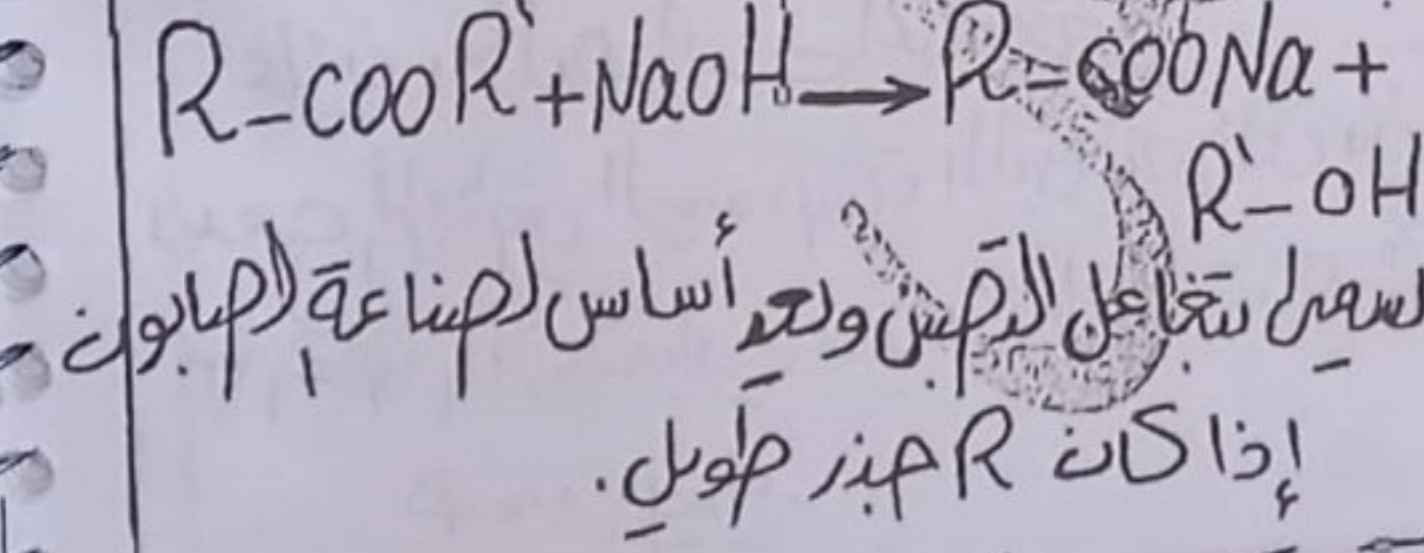 R-COOR' + NaOH → R-COONa +
R'-OH
يسمى بتفاعل التصبن ويعد أساس لصناعة الصابون
إذا كان R جذر طويل.